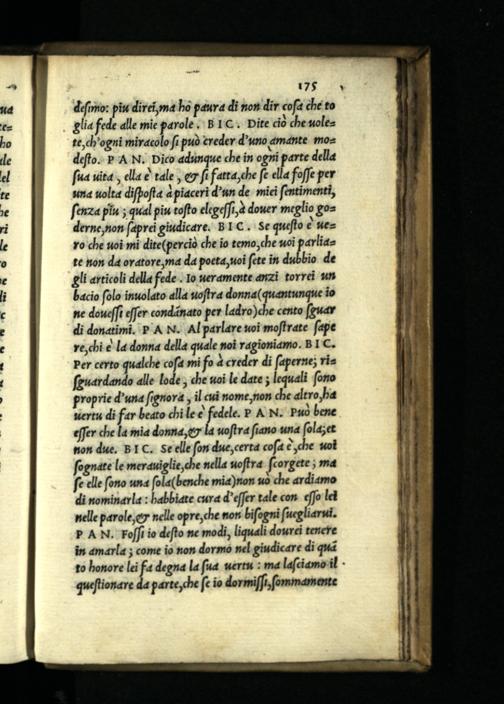 175
desimo: piu direi, ma hò paura di non dir cosa che to
glia fede alle mie parole. BIC. Dite ciò che uole=
te, ch'ogni miracolo si può creder d'uno amante mo=
desto. PAN. Dico adunque che in ogni parte della
sua uita, ella è tale, & si fatta, che se ella fosse per
una uolta disposta à piaceri d'un de miei sentimenti,
senza piu; qual piu tosto elegessi, à douer meglio go=
derne, non saprei giudicare. BIC. Se questo è ue=
ro che uoi mi dite (perciò che io temo, che uoi parlia=
te non da oratore, ma da poeta, uoi sete in dubbio de
gli articoli della fede. Io ueramente anzi torrei un
bacio solo inuolato alla uostra donna (quantunque io
ne douessi esser condānato per ladro) che cento sguar
di donatimi. PAN. Al parlare uoi mostrate sape
re, chi è la donna della quale noi ragioniamo. BIC.
Per certo qualche cosa mi fo à creder di saperne; ri=
sguardando alle lode, che uoi le date; lequali sono
proprie d'una signora, il cui nome, non che altro, ha
uertu di far beato chi le è fedele. PAN. Può bene
esser che la mia donna, & la uostra siano una sola; et
non due. BIC. Se elle son due, certa cosa è, che uoi
sognate le merauiglie, che nella uostra scorgete; ma
se elle sono una sola (benche mia) non uò che ardiamo
di nominarla: habbiate cura d'esser tale con esso lei
nelle parole, & nelle opre, che non bisogni suegliarui.
PAN. Fossi io desto ne modi, liquali dourei tenere
in amarla; come io non dormo nel giudicare di quā
to honore lei fa degna la sua uertu: ma lasciamo il
questionare da parte, che se io dormissi, sommamente